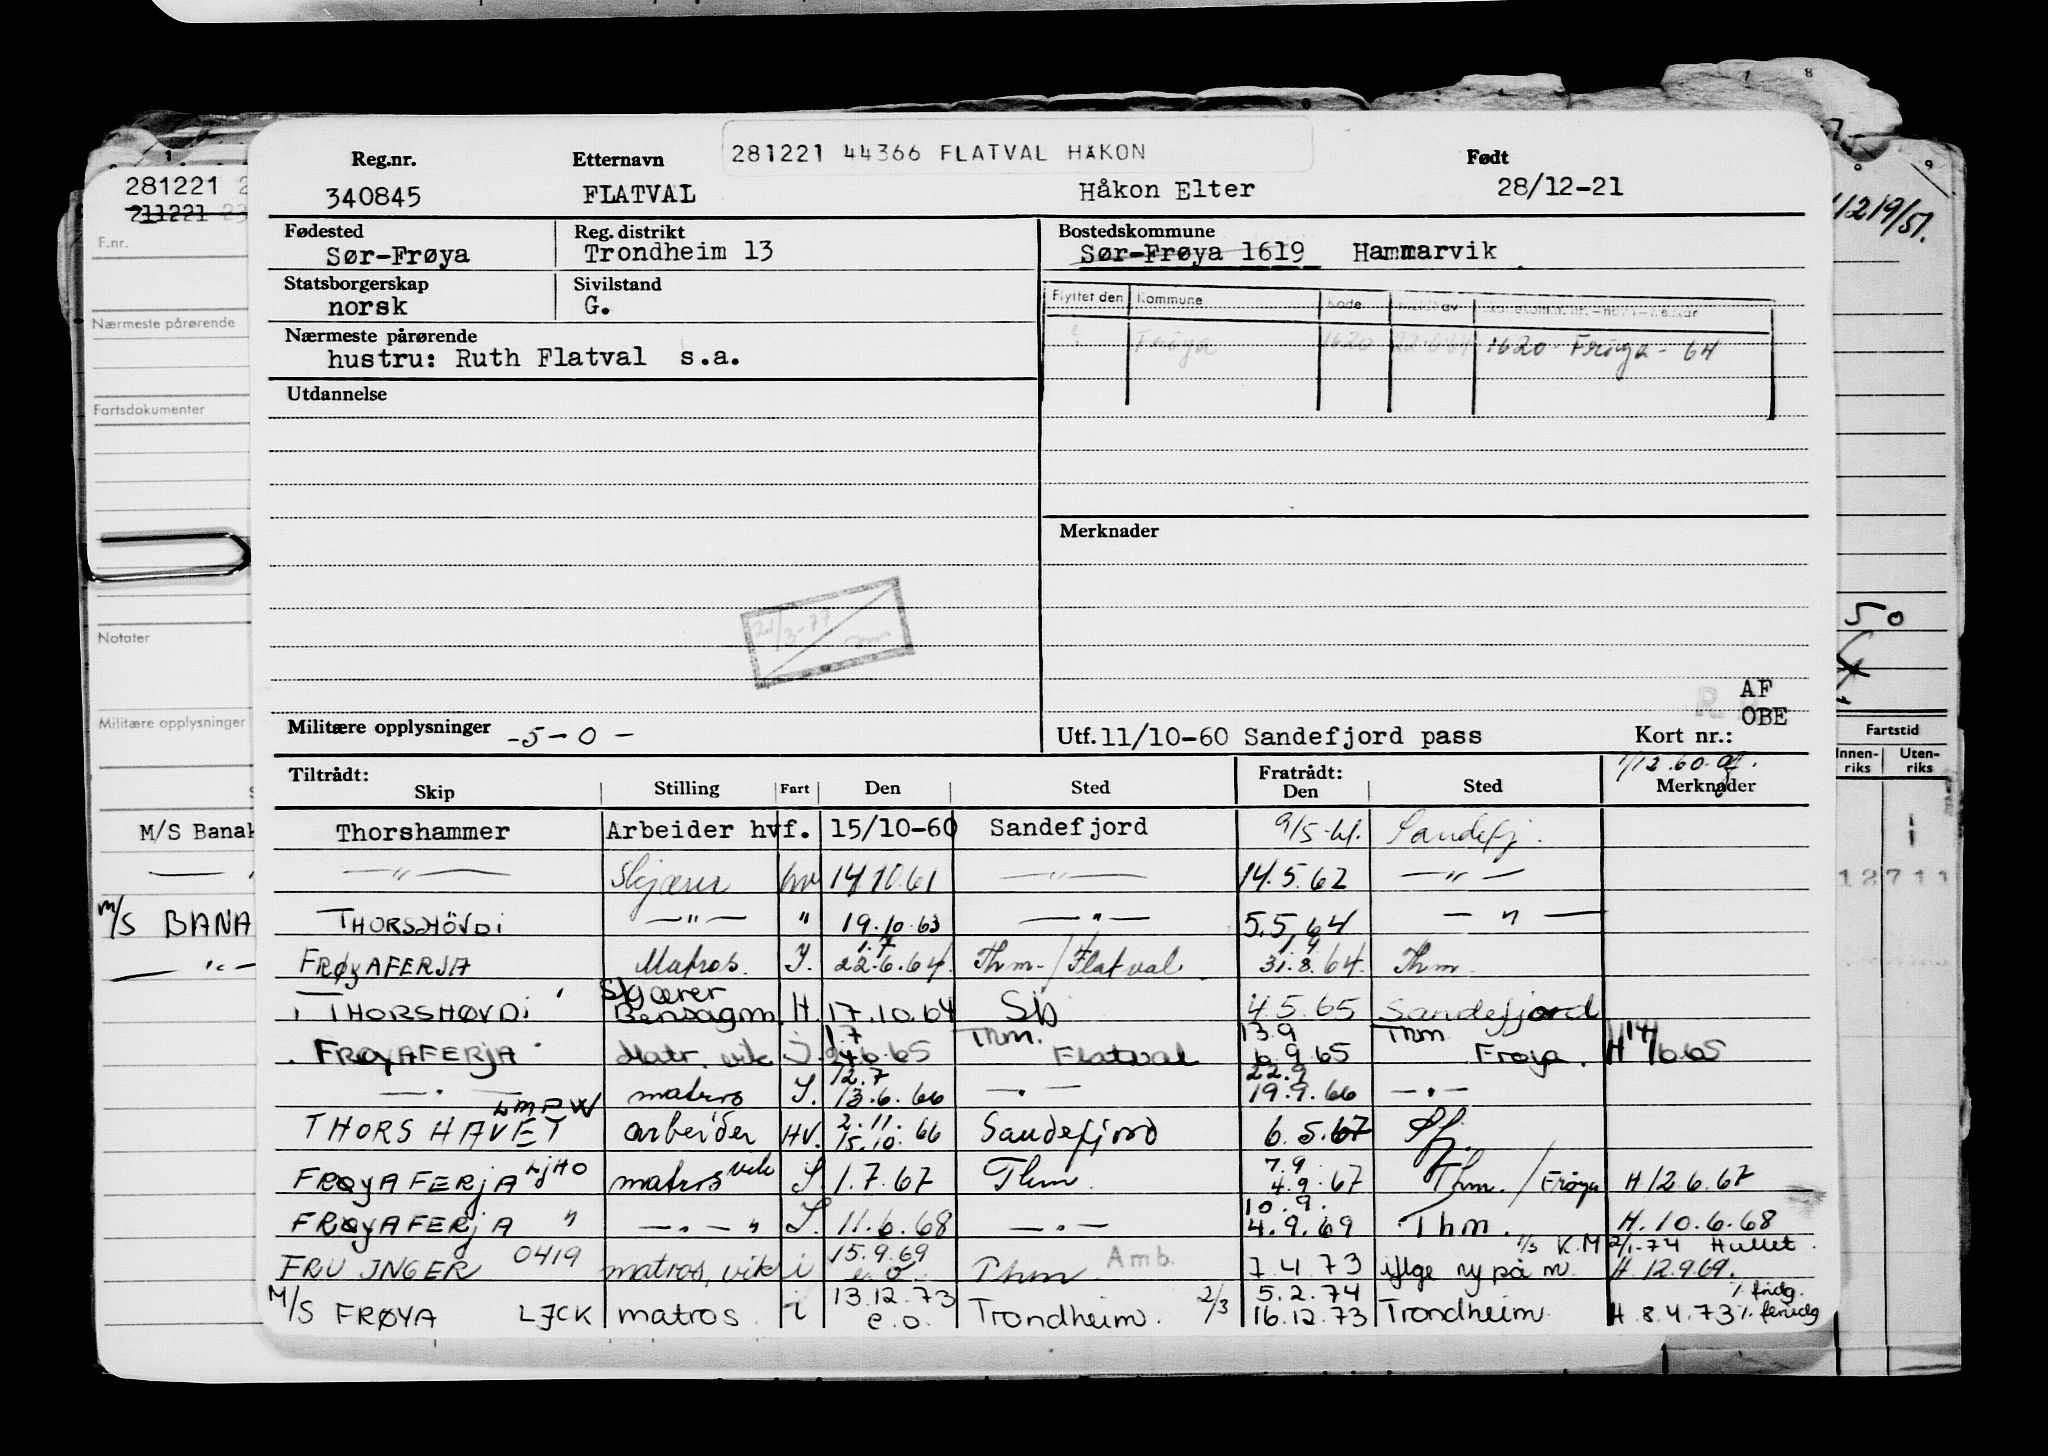 281221 44366 FLATVAL HÅKON
Reg.nr. Etternavn Født
340845 FLATVAL Håkon Elter 28/12-21
Fødested Reg. distrikt Bostedskommune
Sør-Frøya Trondheim 13 Sør-Frøya 1619 Hammarvik
Statsborgerskap Sivilstand
norsk G.
Flyttet den Kommune Kode
Frøya 1620 22.6.64 1620 - Frøya - 64
Nærmeste pårørende
hustru: Ruth Flatval s.a.
Utdannelse
Merknader
AF
OBE
Militære opplysninger -5-0-
Utf. 11/10-60 Sandefjord pass Kort nr.:
Tiltrådt: Fratrådt: 1/12.60.
Skip Stilling Fart Den Sted Den Sted Merknader
Thorshammer Arbeider hvf. 15/10-60 Sandefjord 9/5-61. Sandefj.
—"— Skjærer hv 14.10.61 —"— 14.5.62 —"—
THORSHÖVDI —"— " 19.10.63 —"— 5.5.64 —"—
1.7 1.9
FRØYAFERJA Matros. I. 22.6.64. Thm. / Flatval. 31.8.64. Thm.
Skjærer
THORSHØVDI Bensagm. H. 17.10.64 4.5.65 Sandefjord
1.7 Thm. 13.9 Thm
FRØYAFERJA Matr. vik 24.6.65 Flatval 6.9.65 Frøya. H 14/6.65
12.7 22.9
—"— matros I. 13.6.66 —"— 19.9.66 —"—
LMPW 2.11.
THORSHAVET arbeider HV. 15.10.66 Sandefjord 6.5.67 Sfj.
7.9
FRØYAFERJA LJHO matros vik I. 1.7.67 Thm. 4.9.67 Thm. / Frøya H 12.6.67
10.9.
FRØYAFERJA " —"— " I. 11.6.68 —"— 4.9.69 Thm. H. 10.6.68
15.9.69 Amb. 1/3 K.M 2/1.74 Hullet.
FRU INGER 0419 matros, vik i e.o. Thm 7.4.73 iflge ny på m. H. 12.9.69.
13.12.73 5.2.74
M/S FRØYA LJCK matros. i e.o. Trondheim. 2/3 16.12.73 Trondheim. H 8.4.73
281221
211221
F.nr.
Nærmeste pårørende
Fartsdokumenter
Notater
Militære opplysninger
M/S Banak
M/S BANA
1219/51.
50
Fartstid
Innen-riks Uten-riks
12711